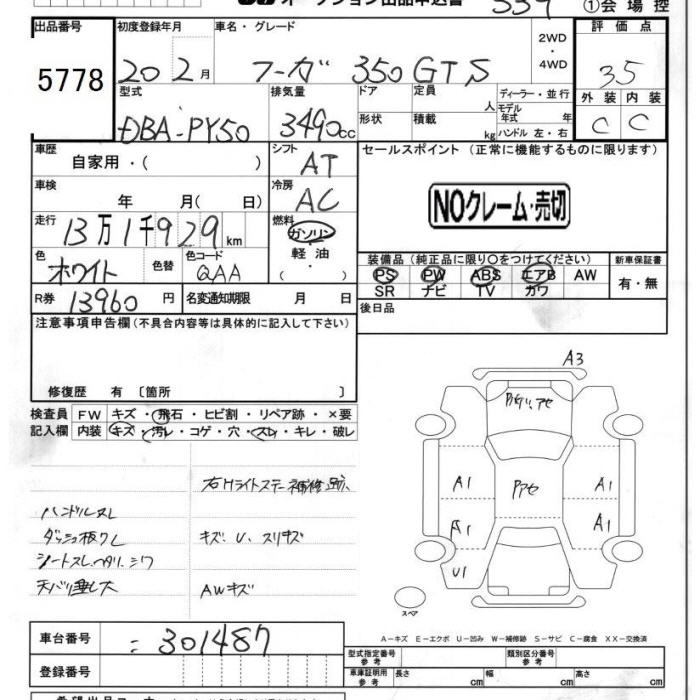 オークション出品申込書 539 ①会場控
出品番号 初度登録年月 車名・グレード 2WD・4WD 評価点
5778 20 2月 フーガ 350GTS 3.5
型式 排気量 ドア 定員 人 ディーラー・並行 外装 内装
DBA-PY50 3490cc 形状 積載 kg モデル年式 年 ハンドル 左・右 C C
車歴 自家用・( ) シフト AT セールスポイント (正常に機能するものに限ります)
車検 年 月( 日) 冷房 AC NOクレーム・売切
走行 13万1千929km 燃料 ガソリン・軽油・( )
色 ホワイト 色替 色コード QAA
装備品 (純正品に限り○をつけてください) 新車保証書
PS PW ABS エアB AW 有・無
SR ナビ TV カワ
R券 13960円 名変通知期限 月 日 後日品
注意事項申告欄(不具合内容等は具体的に記入して下さい)
修復歴 有〔箇所 〕
検査員 FW キズ・飛石・ヒビ割・リペア跡・×要
記入欄 内装 キズ・汚レ・コゲ・穴・スレ・キレ・破レ
右Hライトステー補修跡
ハンドルスレ
ダッシュ板ワレ キズ、U、スリキズ
シートスレ、ヘタリ、シワ
天バリ垂レ大 AWキズ
A3
アセ
A1 アセ A1
A1 A1
U1
スペア
A-キズ E-エクボ U-凹み W-補修跡 S-サビ C-腐食 XX-交換済
車台番号 301487
登録番号
型式指定番号 参考 類別区分番号 参考
車庫証明用 参考 長さ cm 幅 cm 高さ cm